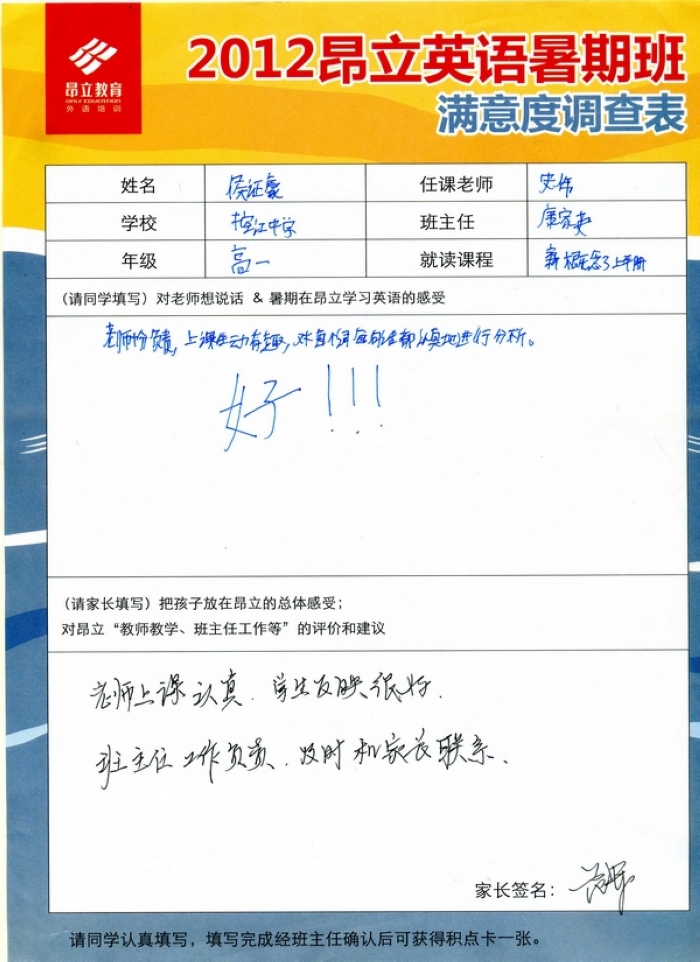 昂立教育
ONLY EDUCATION
外语培训
2012昂立英语暑期班
满意度调查表
姓名 侯证豪 任课老师 史炜
学校 控江中学 班主任
年级 高一 就读课程 新概念3上半册
(请同学填写) 对老师想说话 & 暑期在昂立学习英语的感受
老师份负责,上课生动有趣,对每个同学都认真地进行分析。
好!!!
(请家长填写) 把孩子放在昂立的总体感受;
对昂立“教师教学、班主任工作等”的评价和建议
老师上课认真、学生反映很好、
班主任工作负责、及时和家长联系、
家长签名:
请同学认真填写,填写完成经班主任确认后可获得积点卡一张。